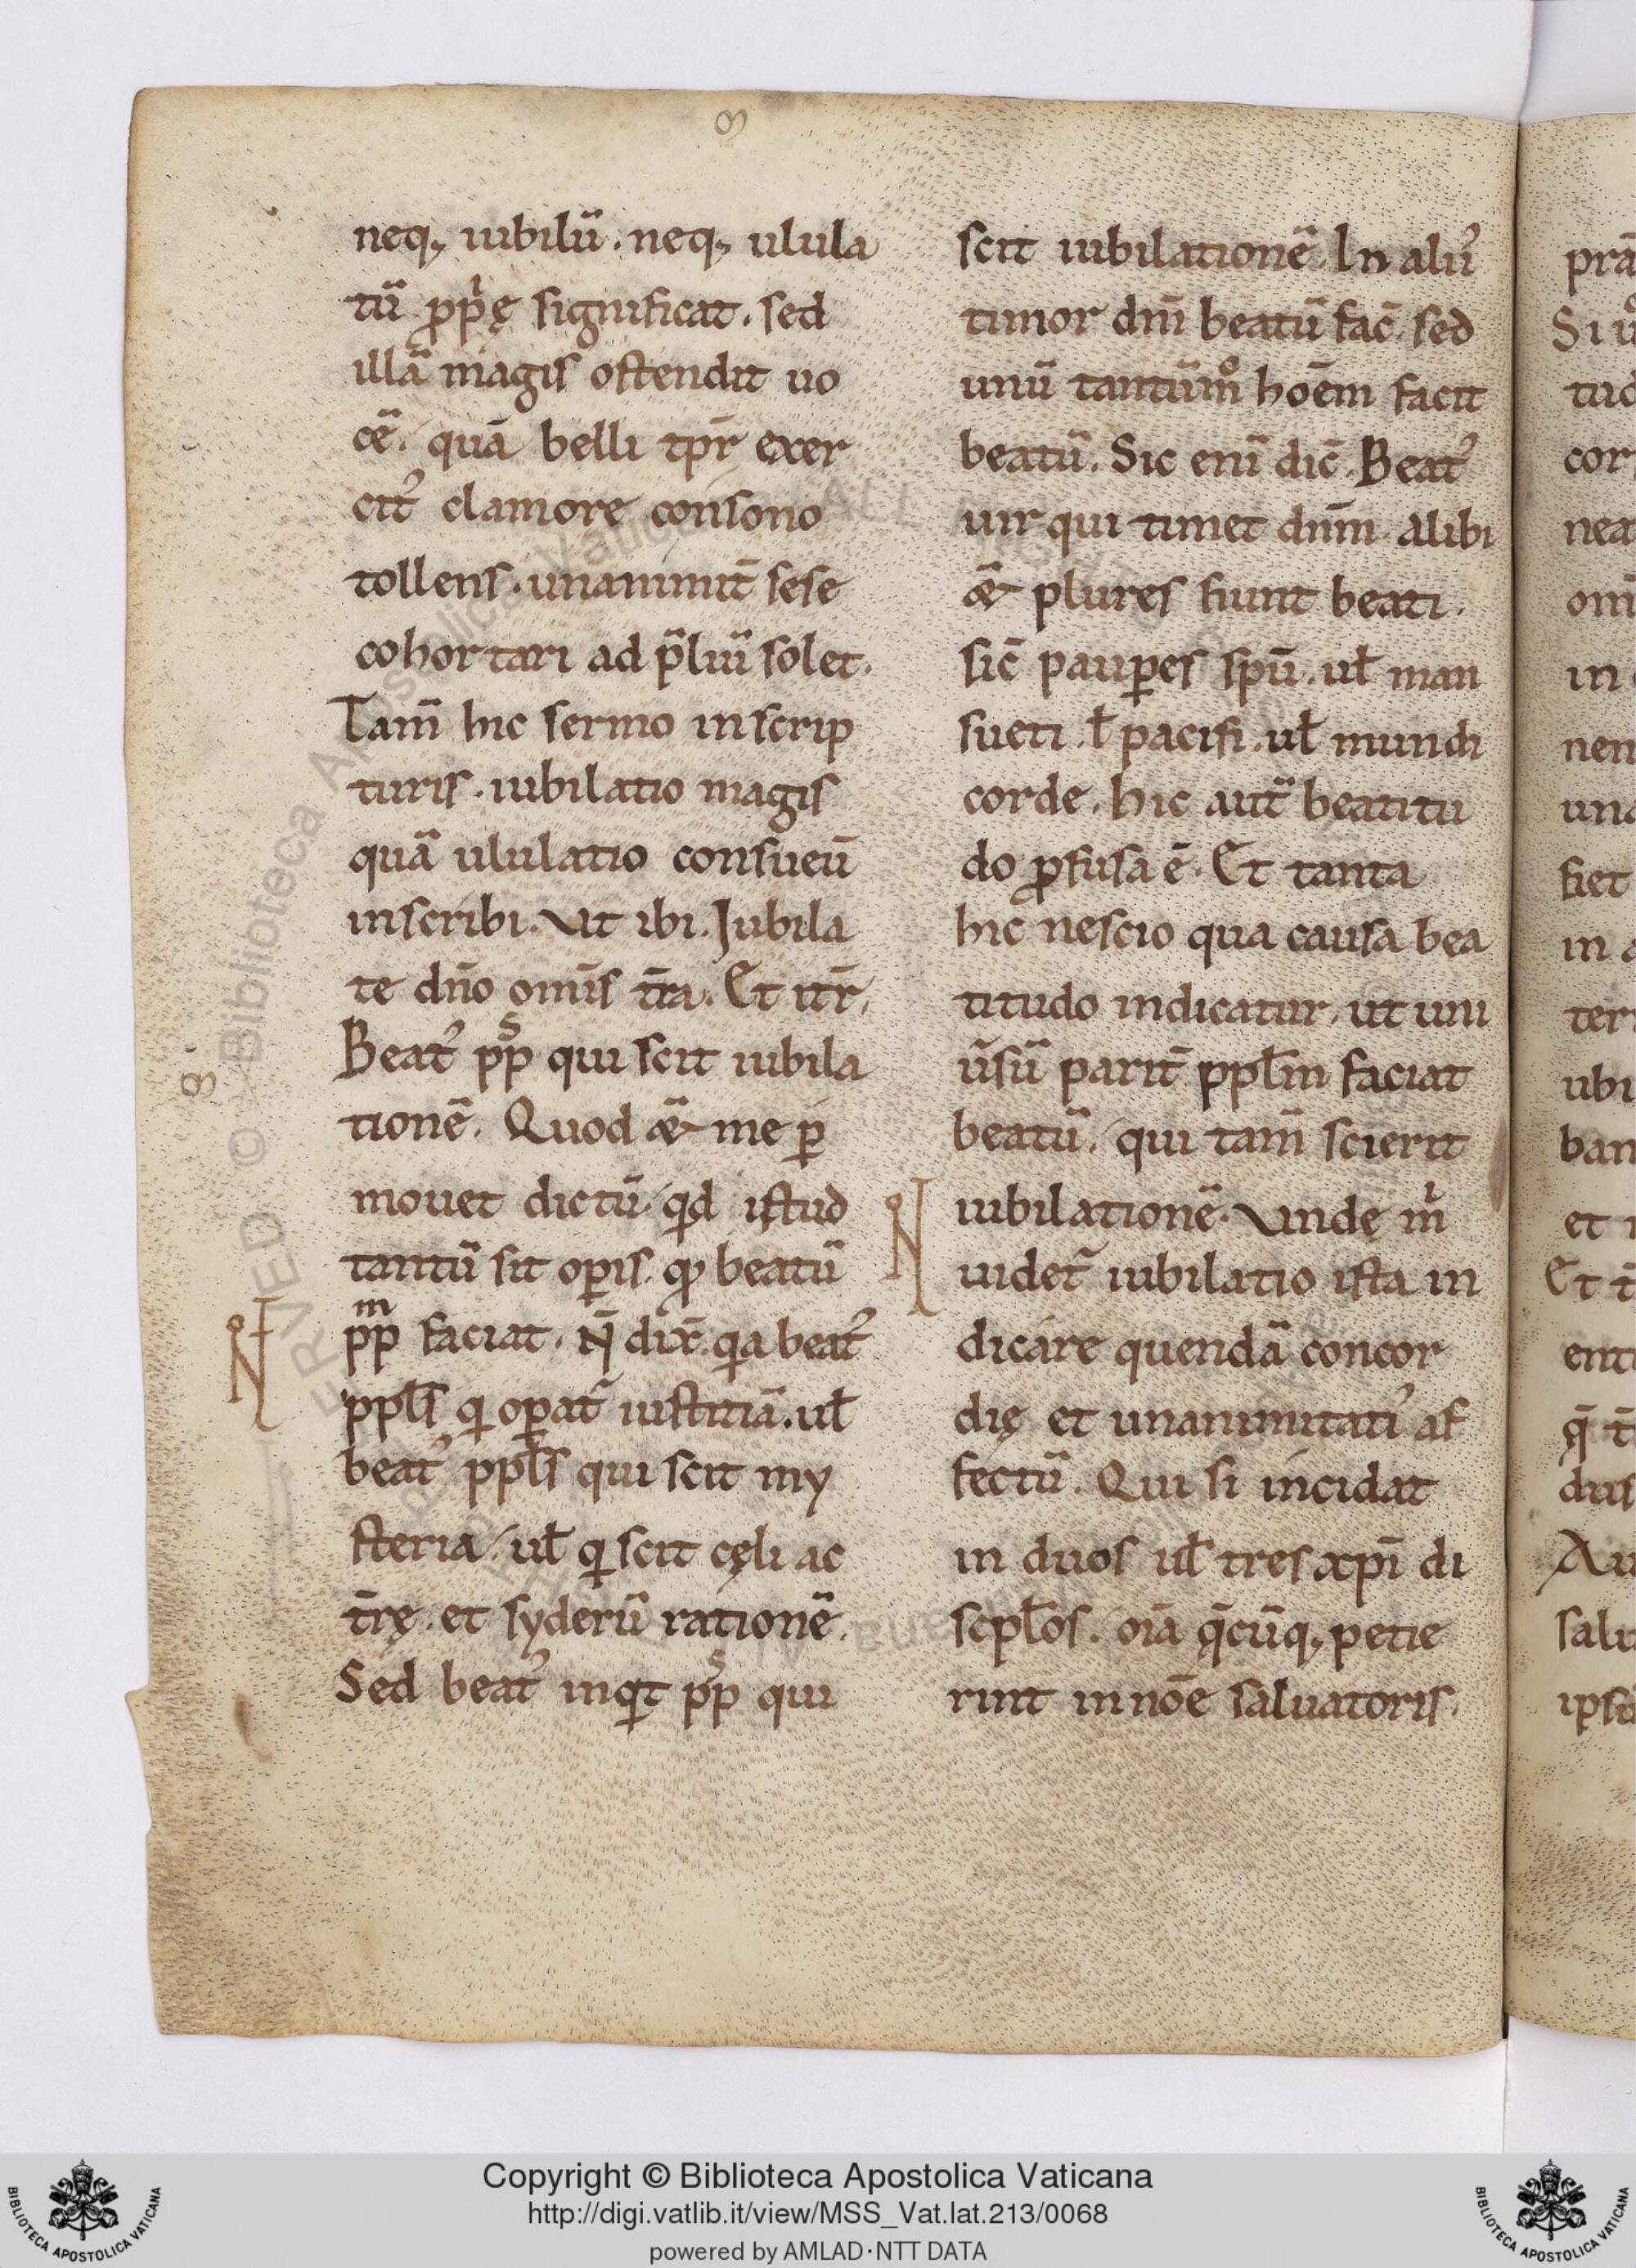 neq; iubilũ. neq; ulula
tũ ꝓpͥę significat. sed
illã magis ostendit uo
cẽ. quã belli tp̃r exer
citꝰ clamore consono
tollens. unanimit̃ sese
cohortari ad p̃liũ solet.
Tam̃ hic sermo in scrip
turis. iubilatio magis
quã ululatio consueũ
inscribi. Ut ibi. Jubila
te dño om̃is t̃ra. Et it̃r,
Beatꝰ pp̃s qui scit iubila
tionẽ. Quod & me ꝑ
mouet dictũ qd istud
tantũ sit oꝑis. qͦ beatũ
ppᵐ faciat. Ñ dix̃. qa beatꝰ
ppl̃s qͥ oꝑat̃ iustitiã. ul̃
beatꝰ ppl̃s qui scit my
steria. ul̃ qͥ scit cęli ac
t̃rę. et syderũ rationẽ.
Sed beatꝰ inqͥt pp̃s qui
scit iubilationẽ. In aliiꝰ
timor dñi beatũ fac̃. sed
unũ tantũmͦ hoẽm facit
beatũ. Sic enĩ dic̃. Beatꝰ
uir qui timet dñm. Alibi
& plures fiunt beati.
sic̃ pauꝑes sp̃u. ul̃ man
sueti. l̃ pacifi. ul̃ mundi
corde. hic aut̃ beatitu
do ꝓfusa ẽ. Et tanta
hic nescio qua causa bea
titudo indicatur, ut uni
ũsũ parit̃ ppl̃m faciat
beatũ. qui tam̃ scierit
iubilationẽ. Unde mͥ
uidet̃ iubilatio ista in
dicare quendã concor
dię et unanimitatiꝰ af
fectũ. Qui si incidat
in duos ul̃ tres xp̃i di
scpl̃os. oĩa q̃cũq; petie
rint in noẽ saluatoris.
Copyright © Biblioteca Apostolica Vaticana
http://digi.vatlib.it/view/MSS_Vat.lat.213/0068
powered by AMLAD·NTT DATA